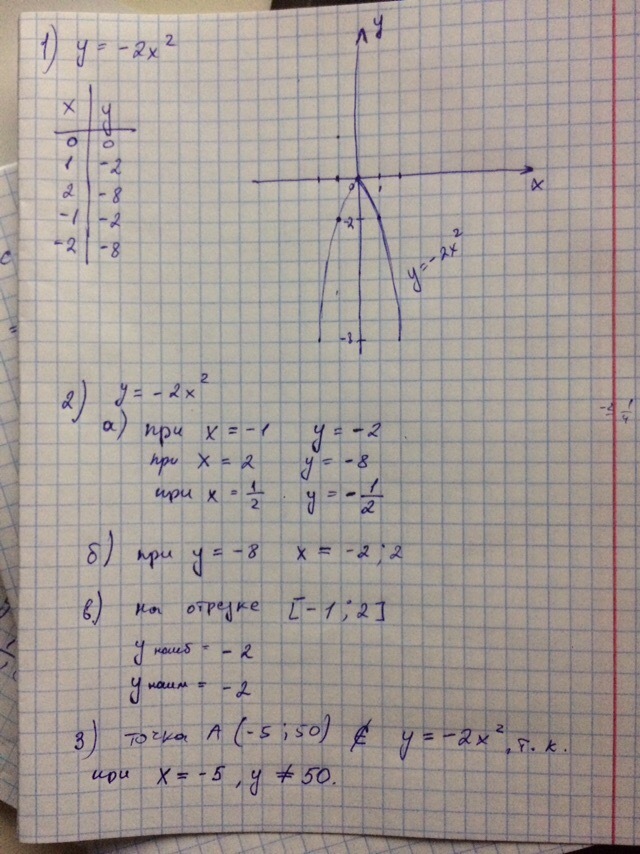 1) y = -2x²
x | y
0 | 0
1 | -2
2 | -8
-1 | -2
-2 | -8
y
x
0
1
-2
-8
y=-2x²
2) y = -2x²
а) при x = -1 y = -2
при x = 2 y = -8
при x = 1/2 y = -1/2
б) при y = -8 x = -2; 2
в) на отрезке [-1; 2]
y наиб = -2
y наим = -2
3) точка A (-5; 50) ∉ y = -2x², т.к.
при x = -5, y ≠ 50.